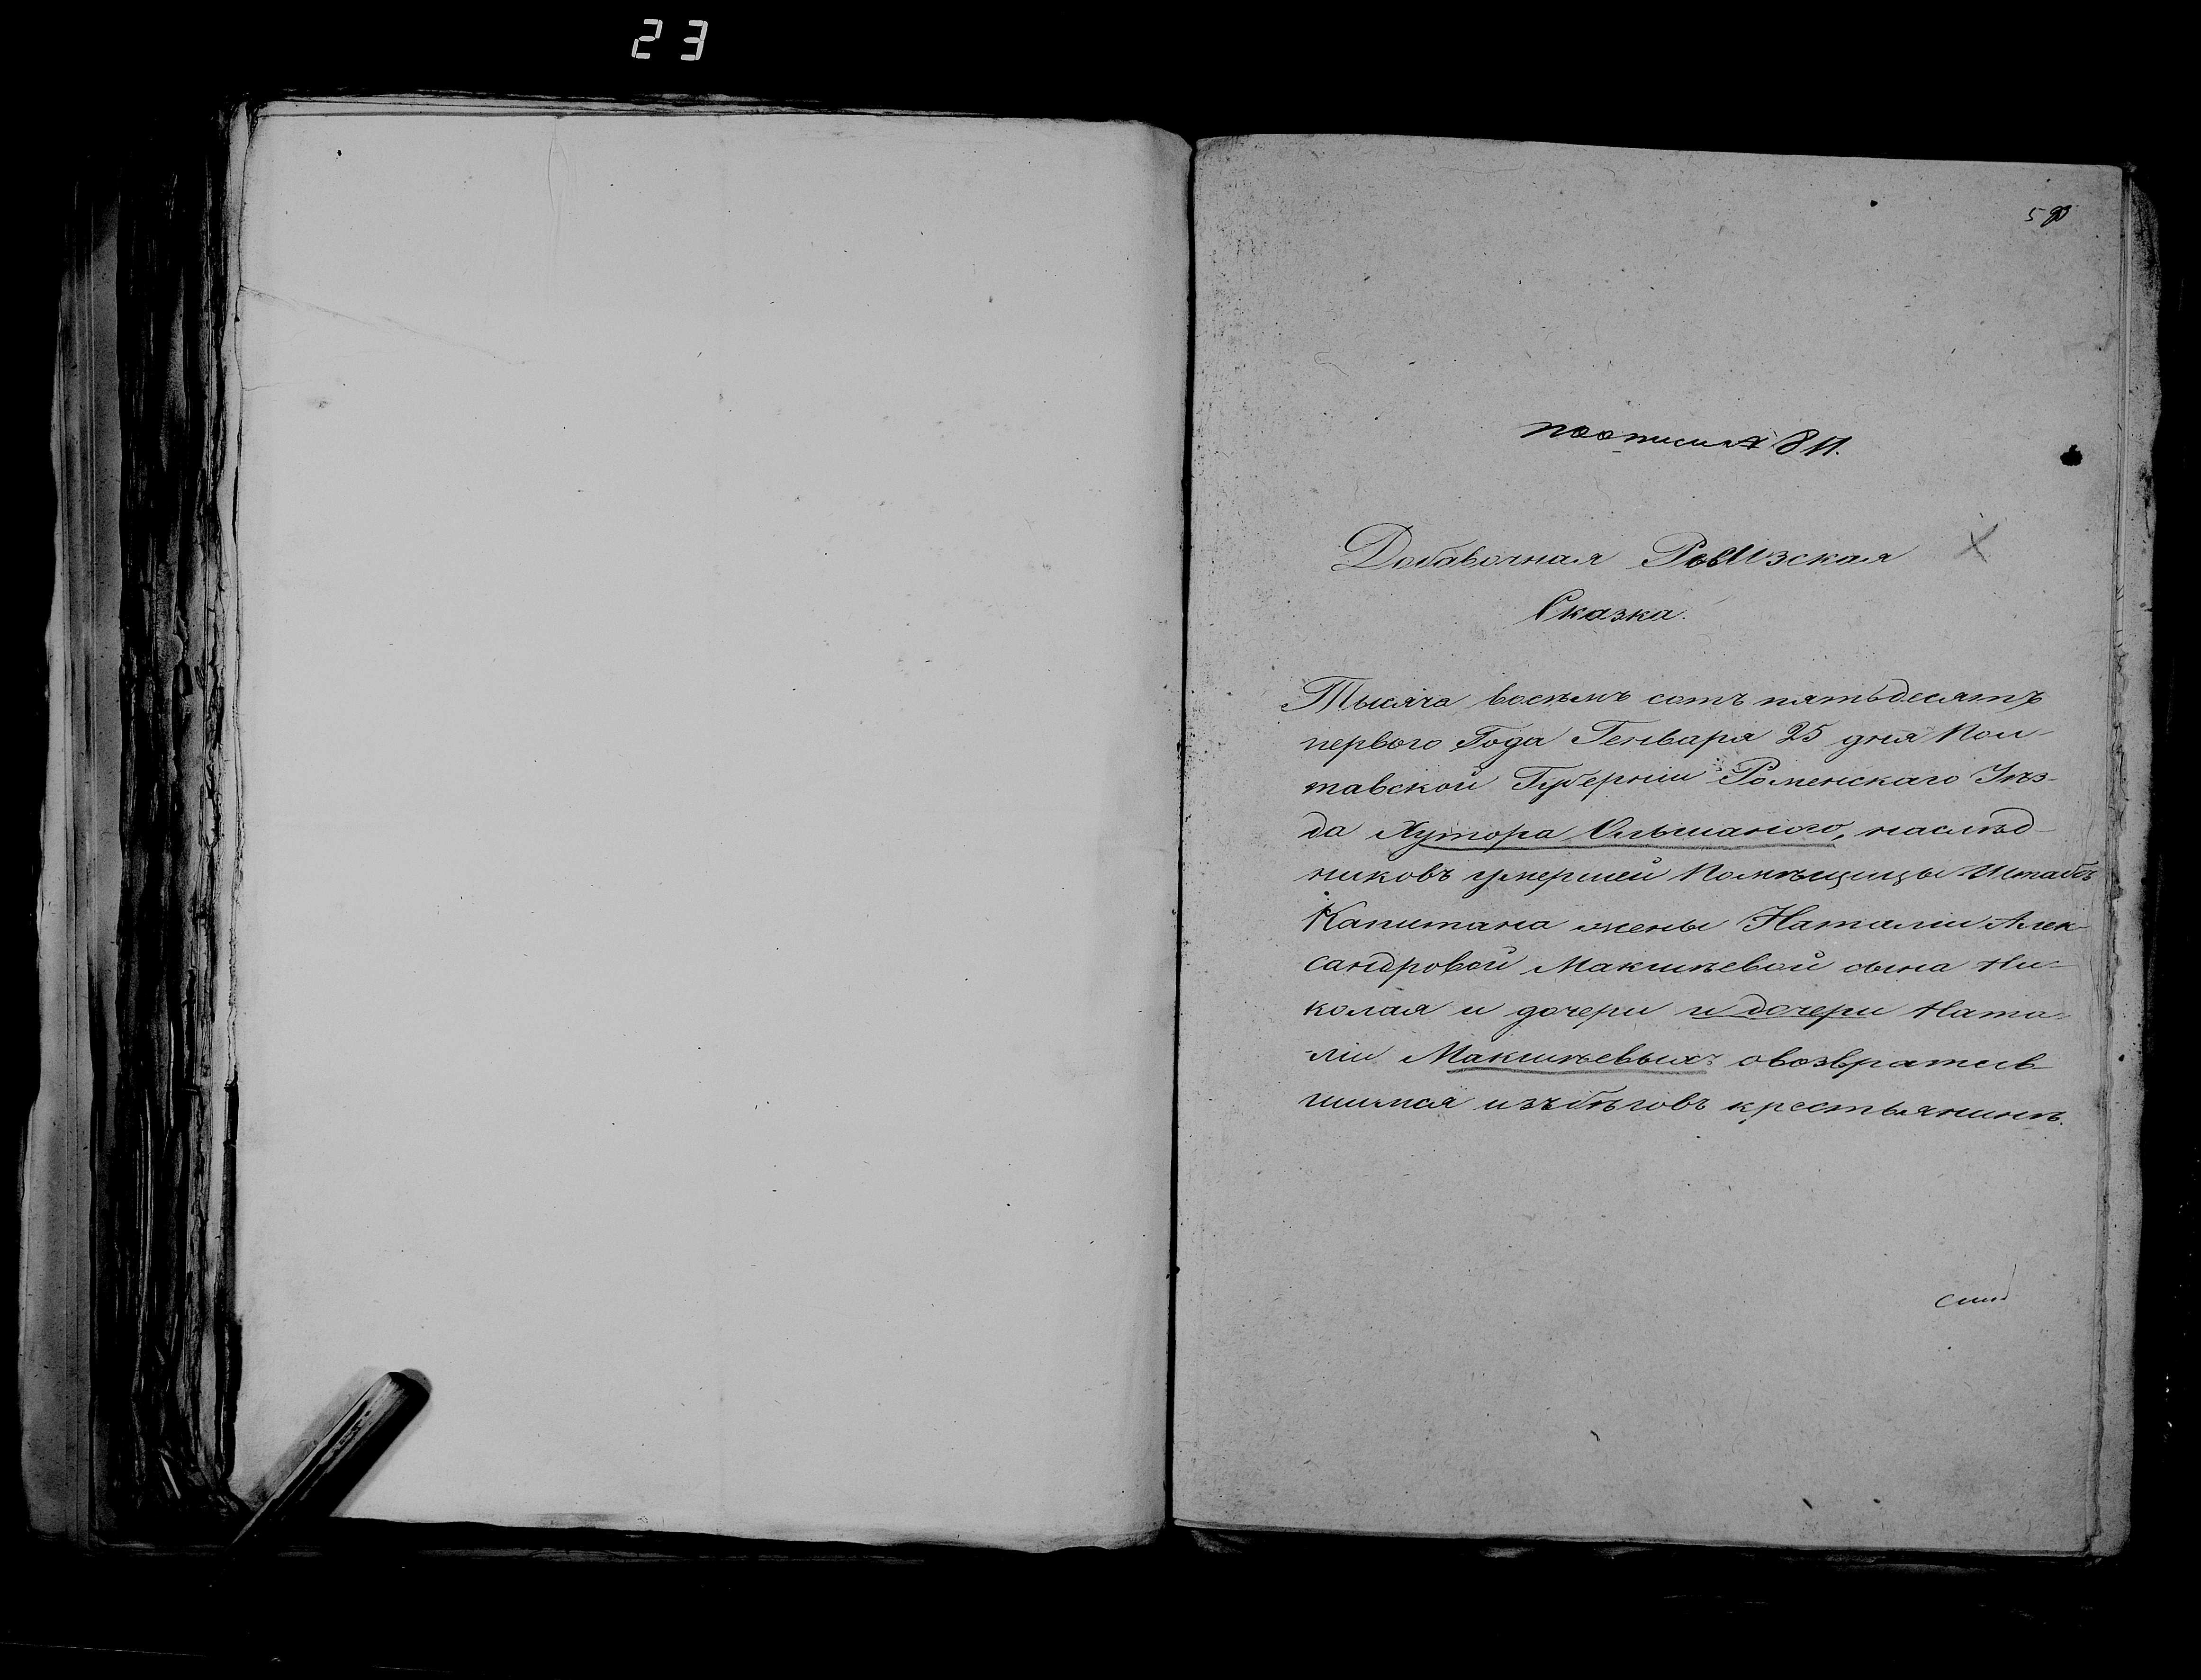 23
по описи № 811.
Добавочная Ревизская
Сказка.
Тысяча восемь сотъ пятьдесятъ
перваго Года Генваря 25 дня Пол-
тавской Губерніи Роменскаго Уѣз-
да Хутора Ольшаного, наслѣд-
никовъ умершей Помѣщицы Штабъ
Капитана жены Наталіи Алек-
сандровой Макшѣевой сына Ни-
колая и дочери и дочери Ната-
ліи Макшѣевыхъ овозвратив-
шимся изъ бѣговъ крестьянинѣ.